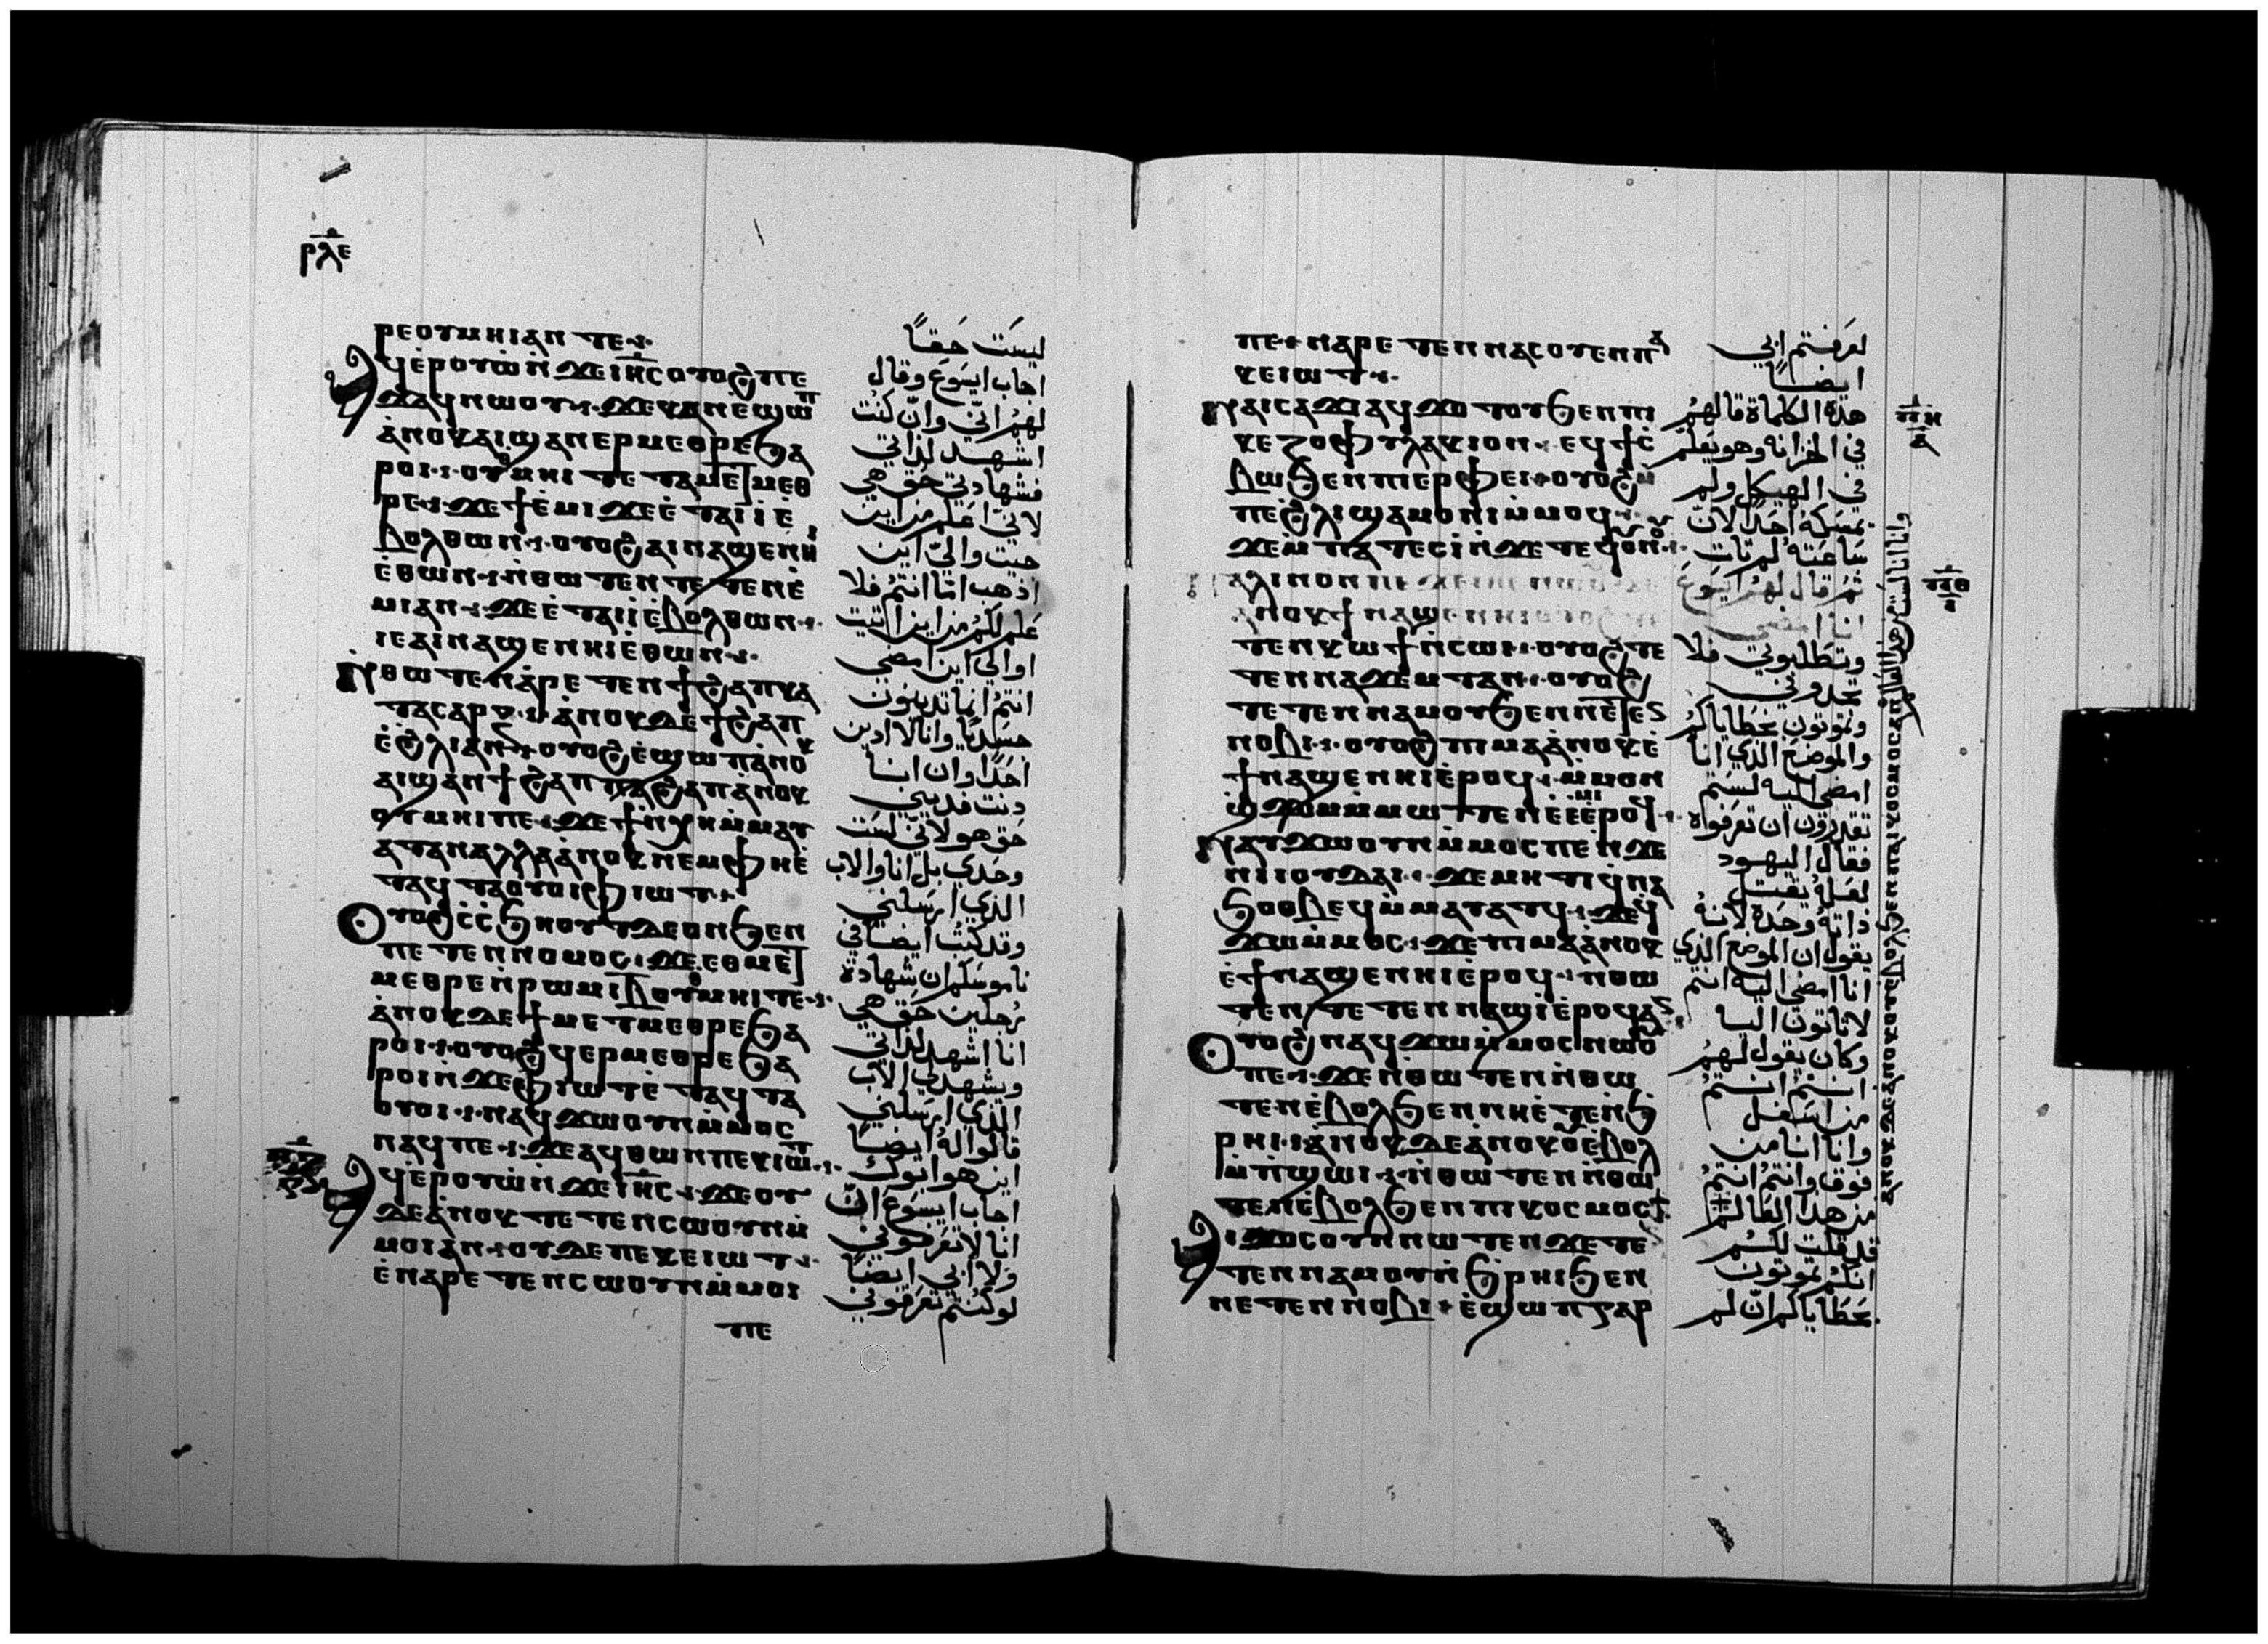 ⲣⲗⲉ
ⲣⲉⲟⲩⲙⲏⲓ ⲁⲛ ⲧⲉ
ⲁϥⲉⲣⲟⲩⲱ̇ ⲛ̇ϫⲉ ⲓⲏⲥ ⲟⲩⲟϩ ⲡⲉ
ϫⲁϥ ⲛⲱⲟⲩ ϫⲉ ⲕⲁⲛ ⲉϣⲱⲡ
ⲁ̇ⲛⲟⲕ ⲁⲓϣⲁⲛⲉⲣⲙⲉⲑⲣⲉ ϧⲁ
ⲣⲟⲓ ⲟⲩⲙⲏⲓ ⲧⲉ ⲧⲁⲙⲉⲧⲙⲉⲑ
ⲣⲉ ϫⲉ ϯⲉ̇ⲙⲓ ϫⲉ ⲉ̇ⲧⲁⲓⲓ̇ ⲉ
ⲃⲟⲗ ⲑⲱⲛ ⲟⲩⲟϩ ⲁⲓⲛⲁϣⲉⲛⲏⲓ
ⲉ̇ⲑⲱⲛ ⲛ̇ⲑⲱⲧⲉⲛ ⲧⲉⲧⲉⲛⲉ̇
ⲙⲓ ⲁⲛ ϫⲉ ⲉ̇ⲧⲁⲓⲓ̇ ⲉ̇ⲃⲟⲗ ⲑⲱⲛ
ⲓⲉ ⲁⲓⲛⲁϣⲉⲛⲏⲓ ⲉ̇ⲑⲱⲛ
ⲛ̇ⲑⲱⲧⲉⲛ ⲁ̇ⲣⲉⲧⲉⲛϯϩⲁⲡ ⲕⲁ
ⲧⲁ ⲥⲁⲣⲝ ⲁ̇ⲛⲟⲕ ⲇⲉ ϯϩⲁⲡ
ⲉ̇ϩⲗⲓ ⲁⲛ ⲟⲩⲟϩ ⲉ̇ϣⲱⲡ ⲁ̇ⲛⲟⲕ
ⲁⲓϣⲁⲛϯϩⲁⲡ ⲡⲁϩⲁⲡ ⲁ̇ⲛⲟⲕ
ⲟⲩⲙⲏⲓ ⲡⲉ ϫⲉ ϯⲛ̇ⲭⲏ ⲙ̇ⲙⲁⲩ
ⲁⲧ ⲁⲛ ⲁⲗⲗⲁ ⲁ̇ⲛⲟⲕ ⲛⲉⲙ ⲫⲏ ⲉ̇
ⲧⲁϥⲧⲁⲟⲩⲟⲓ ⲫⲓⲱⲧ
ⲟⲩⲟϩ ⲥ̇ⲥ̇ϧⲏⲟⲩⲧ ⲇⲉ ⲟⲛ ϧⲉⲛ
ⲡⲉⲧⲉⲛⲛⲟⲙⲟⲥ ϫⲉ ⲉⲑⲙⲉⲧ
ⲙⲉⲑⲣⲉ ⲛ̇ⲣⲱⲙⲓ ⲃ̅ ⲟⲩⲙⲏⲓ ⲧⲉ
ⲁ̇ⲛⲟⲕ ⲇⲉ ϯⲙⲉⲧⲙⲉⲑⲣⲉ ϧⲁ
ⲣⲟⲓ ⲟⲩⲟϩ ϥⲉⲣⲙⲉⲑⲣⲉ ϧⲁ
ⲣⲟⲓ ⲛ̇ϫⲉ ⲫⲓⲱⲧ ⲉ̇ⲧⲁϥⲧⲁ
ⲟⲩⲟⲓ ⲛⲁⲩϫⲱⲟⲩⲛ ⲙ̇ⲙⲟⲥ
ⲛⲁϥ ⲡⲉ ϫⲉ ⲁϥⲑⲱⲛ ⲡⲉⲕⲓⲱⲧ
ⲁϥⲉⲣⲟⲩⲱ̇ ⲛ̇ϫⲉ ⲓⲏⲥ ϫⲉ ⲟⲩ
ⲇⲉ ⲁ̇ⲛⲟⲕ ⲧⲉⲧⲉⲛⲥⲱⲟⲩⲛ ⲙ̇
ⲙⲟⲓ ⲁⲛ ⲟⲩⲇⲉ ⲡⲉⲕⲉⲓⲱⲧ
ⲉ̇ⲛⲁⲣⲉⲧⲉⲛⲥⲱⲟⲩⲛ ⲙ̇ⲙⲟⲓ
ⲡⲉ
ليست حقًا
اجاب ايسوع وقال
لهم اني وان كنت
اشهد لذاتي
فشهادتي حق هي
لاني اعلم من اين
جيت والي اين
اذهب امّا انتم فلا
علم لكم من اين اتيت
او الي اين امضي
انتم انما تدينون
جسديًا وانا لا ادين
احدًا وان انا
دنت فديني
حق هو لاني لست
وحدي بل انا والاب
الذي ارسلني
وقد كتب ايضًا في
ناموسكم ان شهادة
رجلين حق هي
انا اشهد لذاتي
ويشهد لي الاب
الذي ارسلني
قالوا له ايضًا
اين هو ابوك
اجاب ايسوع ان
انا لا تعرفوني
ولا ابي ايضًا
لو كنتم تعرفوني
ⲡⲉ ⲛⲁⲣⲉⲧⲉⲛⲛⲁⲥⲟⲩⲉⲛ ⲡⲁ
ⲕⲉⲓⲱⲧ
ⲛⲁⲓⲥⲁϫⲓ ⲁϥϫⲟⲧⲟⲩ ϧⲉⲛ ⲡⲓ
ⲕⲉⲍⲟⲫⲩⲗⲁⲕⲓⲟⲛ ⲉϥϯⲥ̇
ⲃⲱ ϧⲉⲛ ⲡⲓⲉⲣⲫⲉⲓ ⲟⲩⲟϩ ⲙ̇
ⲡⲉ ϩⲗⲓ ϣⲁⲙⲟⲛⲓ ⲙ̇ⲙⲟϥ
ϫⲉ ⲙ̇ⲡⲁⲧⲉⲥⲓ̇ ⲛ̇ϫⲉ ⲧⲉϥⲟⲩⲛⲟⲩ
ⲧⲉⲛⲕⲱϯ ⲛ̇ⲥⲱⲓ ⲟⲩⲟϩ ⲧⲉ
ⲧⲉⲛⲛⲁϫⲉⲙⲧ ⲁⲛ ⲟⲩⲟϩ
ⲧⲉⲧⲉⲛⲛⲁⲙⲟⲩ ϧⲉⲛ ⲛⲉⲧⲉⲛ
ⲛⲟⲃⲓ ⲟⲩⲟϩ ⲡⲓⲙⲁ ⲁ̇ⲛⲟⲕ ⲉ̇
ϯⲛⲁϣⲉⲛⲏⲓ ⲉ̇ⲣⲟϥ ⲙ̇ⲙⲟⲛ
ϣ̇ϫⲟⲙ ⲙ̇ⲙⲱⲧⲉⲛ ⲉ̇ⲉ̇ⲙⲓ ⲉ̇ⲣⲟϥ
ⲛⲁⲩϫⲱⲟⲩⲛ ⲙ̇ⲙⲟⲥ ⲡⲉ ⲛ̇ϫⲉ
ⲛⲓⲓⲟⲩⲇⲁⲓ ϫⲉ ⲙⲏⲧⲓ ϥⲛⲁ
ϧⲟⲑⲃⲉϥ ⲙ̇ⲙⲁⲩⲁⲧϥ ϫⲉ ϥ
ϫⲱ ⲙ̇ⲙⲟⲥ ϫⲉ ⲡⲓⲙⲁ ⲁ̇ⲛⲟⲕ
ⲉ̇ϯⲛⲁϣⲉⲛⲏⲓ ⲉ̇ⲣⲟϥ ⲛⲑⲱ
ⲧⲉⲛ ⲧⲉⲧⲉⲛⲛⲁϣⲓ̇ ⲉ̇ⲣⲟϥ ⲁⲛ
ⲟⲩⲟϩ ⲛⲁϥϫⲱ ⲙ̇ⲙⲟⲥ ⲛⲱⲟⲩ
ⲡⲉ ϫⲉ ⲛ̇ⲑⲱⲧⲉⲛ ⲛ̇ⲑⲱ
ⲧⲉⲛ ⲉ̇ⲃⲟⲗ ϧⲉⲛ ⲛⲏ ⲉ̇ⲧⲉⲛϧ
ⲣⲏⲓ ⲁ̇ⲛⲟⲕ ⲇⲉ ⲁ̇ⲛⲟⲕ ⲟⲩⲉ̇ⲃⲟⲗ
ⲙ̇ⲡϣⲱⲓ ⲛ̇ⲑⲱⲧⲉⲛ ⲛ̇ⲑⲱ
ⲧⲉⲛ ⲉ̇ⲃⲟⲗ ϧⲉⲛ ⲡⲓⲕⲟⲥⲙⲟⲥ
ⲁⲓϫⲟⲥ ⲟⲩⲛ ⲛⲱⲧⲉⲛ ϫⲉ ⲧⲉ
ⲧⲉⲛⲛⲁⲙⲟⲩ ⲛ̇ϧⲣⲏⲓ ϧⲉⲛ
ⲛⲉⲧⲉⲛⲛⲟⲃⲓ ⲉ̇ϣⲱⲡ ⲅⲁⲣ
لعرفتم ابي
ايضًا
هذه الكلماة قالهم
في الخزانه وهو يعلم
في الهيكل ولم
يمسكه احدًا لان
ساعته لم تات
ثم قال لهم ايسوع
انا امضي
وتطلبوني فلا
تجدوني
وتموتون بخطاياكم
والموضع الذي انا
امضي اليه لستم
تقدرون ان تعرفواه
فقال اليهود
لعله يقتل
ذاته وحده لانه
يقول ان الموضع الذي
انا امضي اليه انتم
لا تاتون اليه
وكان يقول لهم
انتم انتم
من اسفل
وانا انا من
فوق وانتم انتم
من هذا العالم
قد قلت لكم
انكم تموتون
بخطاياكم ان لم